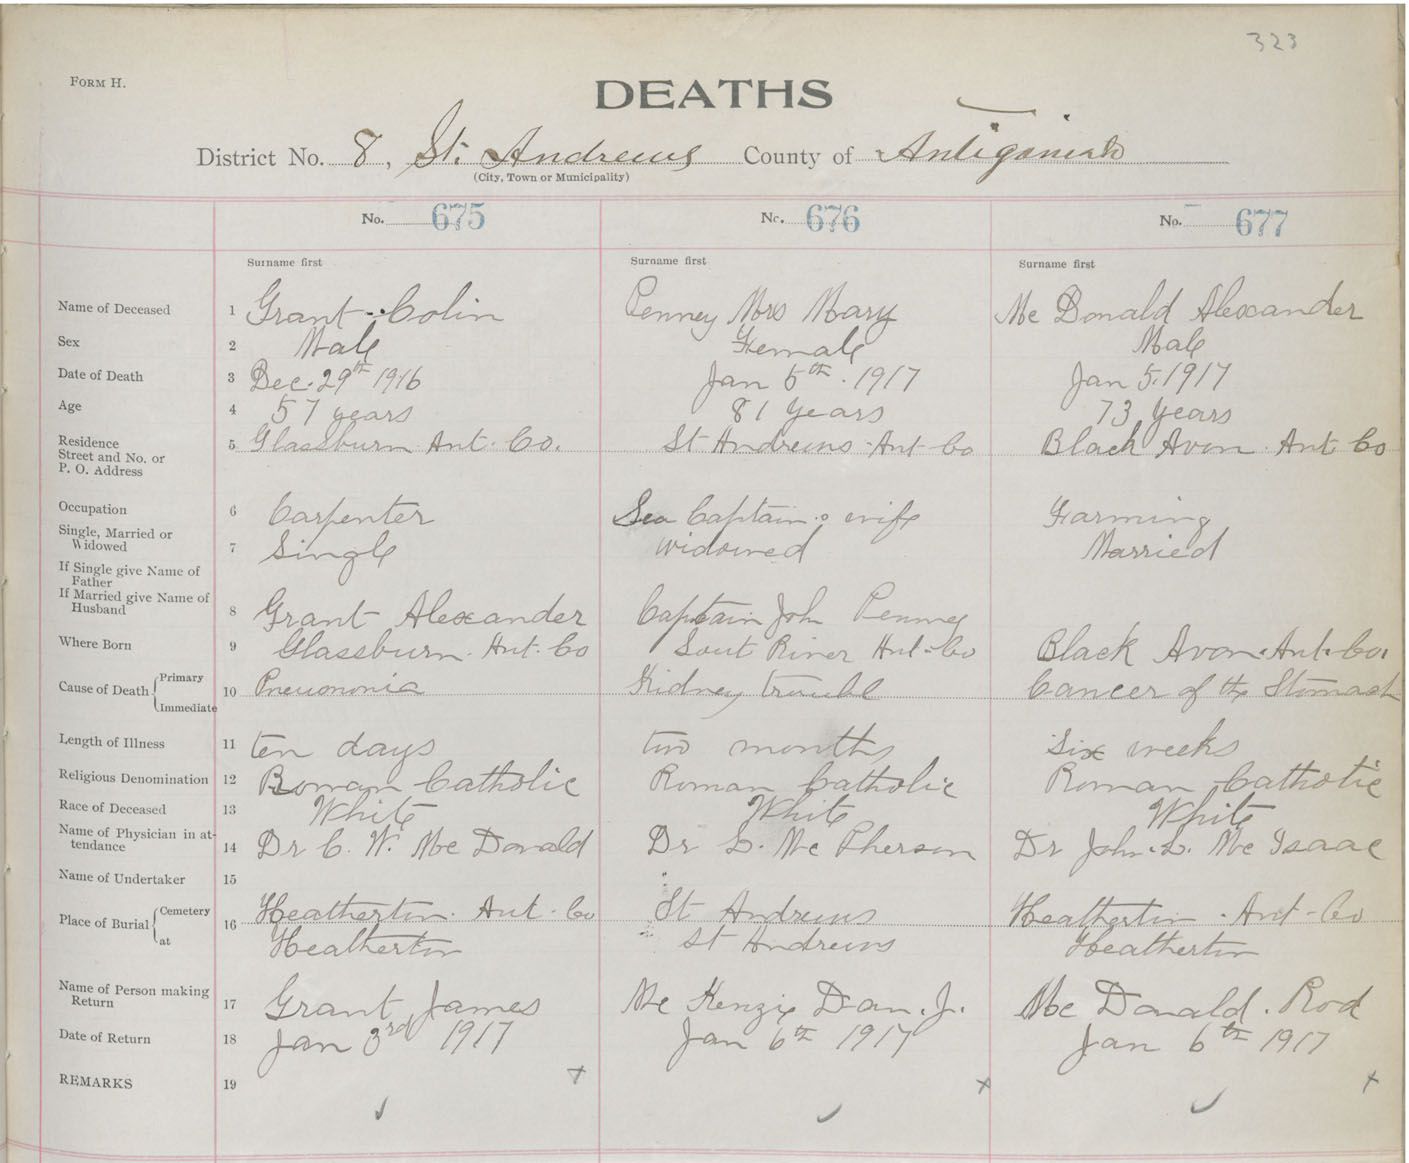 323
FORM H.
DEATHS
District No. 8, St. Andrews County of Antigonish
(City, Town or Municipality)
No. 675 No. 676 No. 677
Surname first Surname first Surname first
Name of Deceased 1 Grant Colin Penney Mrs Mary Mc Donald Alexander
Sex 2 Male Female Male
Date of Death 3 Dec. 29th 1916 Jan 5th. 1917 Jan 5. 1917
Age 4 57 years 81 Years 73 Years
Residence
Street and No. or
P. O. Address
5 Glassburn Ant. Co. St Andrews Ant Co Black Avon Ant Co
Occupation 6 Carpenter Sea Captain's wife Farming
Single, Married or
Widowed
7 Single widowed Married
If Single give Name of
Father
If Married give Name of
Husband
8 Grant Alexander Captain John Penney
Where Born 9 Glassburn. Ant. Co Sout River Ant. Co Black Avon. Ant. Co.
Cause of Death Primary
Immediate
10 Pneumonia Kidney trouble Cancer of the Stomach
Length of Illness 11 ten days two months Six weeks
Religious Denomination 12 Roman Catholic Roman Catholic Roman Catholic
Race of Deceased 13 White White White
Name of Physician in at-
tendance
14 Dr C. W. Mc Donald Dr L. Mc Pherson Dr John. L. Mc Isaac
Name of Undertaker 15
Place of Burial Cemetery
at
16 Heatherton. Ant. Co St Andrews Heatherton. Ant. Co
Heatherton St Andrews Heatherton
Name of Person making
Return
17 Grant, James Mc Kenzie Dan. J. Mc Donald. Rod
Date of Return 18 Jan 3rd 1917 Jan 6th 1917 Jan 6th 1917
REMARKS 19